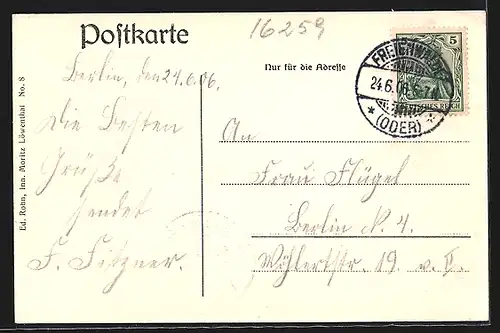 16259
Postkarte
Nur für die Adresse
Berlin, den 24.6.06.
Die Besten
Grüße
sendet
F. Fitzner.
An
Frau Flügel
Berlin N. 4.
Wöhlertstr. 19 v. I.
Ed. Rohn, Inn. Moritz Löwenthal No. 8
5
DEUTSCHES REICH
24.6.06
* (ODER) *